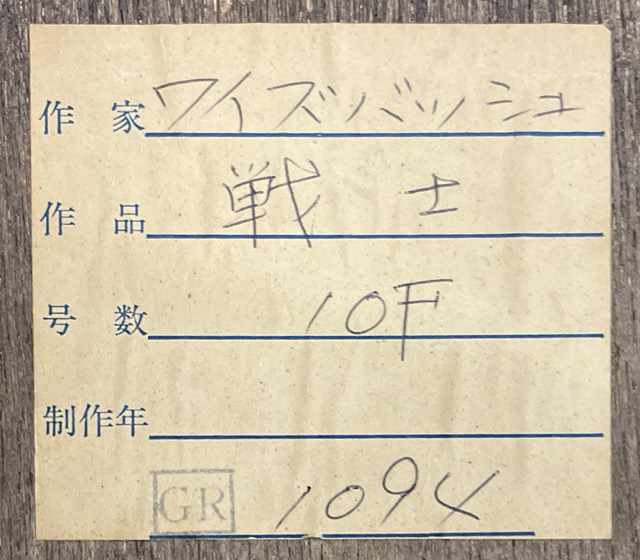 作家 ワイズバッシュ
作品 戦士
号数 10F
制作年
GR 1094